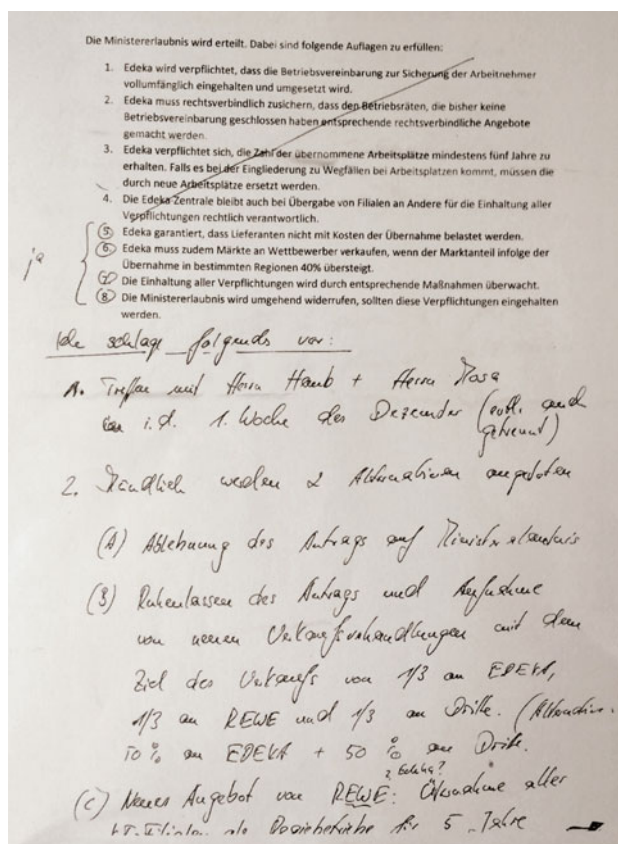 Die Ministererlaubnis wird erteilt. Dabei sind folgende Auflagen zu erfüllen:
1. Edeka wird verpflichtet, dass die Betriebsvereinbarung zur Sicherung der Arbeitnehmer
vollumfänglich eingehalten und umgesetzt wird.
2. Edeka muss rechtsverbindlich zusichern, dass den Betriebsräten, die bisher keine
Betriebsvereinbarung geschlossen haben entsprechende rechtsverbindliche Angebote
gemacht werden.
3. Edeka verpflichtet sich, die Zahl der übernommene Arbeitsplätze mindestens fünf Jahre zu
erhalten. Falls es bei der Eingliederung zu Wegfällen bei Arbeitsplatzen kommt, müssen die
durch neue Arbeitsplätze ersetzt werden.
4. Die Edeka Zentrale bleibt auch bei Übergabe von Filialen an Andere für die Einhaltung aller
Verpflichtungen rechtlich verantwortlich.
5. Edeka garantiert, dass Lieferanten nicht mit Kosten der Übernahme belastet werden.
6. Edeka muss zudem Märkte an Wettbewerber verkaufen, wenn der Marktanteil infolge der
Übernahme in bestimmten Regionen 40% übersteigt.
ja
7. Die Einhaltung aller Verpflichtungen wird durch entsprechende Maßnahmen überwacht.
8. Die Ministererlaubnis wird umgehend widerrufen, sollten diese Verpflichtungen eingehalten
werden.
Ich schlage folgendes vor:
1. Treffen mit Herrn Haub + Herrn Mosa
i.d. 1. Woche des Dezember (evtl. auch
getrennt)
2. Mündlich werden 2 Alternativen angeboten
(A) Ablehnung des Antrags auf Ministererlaubnis
(B) Ruhenlassen des Antrags und Aufnahme
von neuen Verkaufsverhandlungen mit dem
Ziel des Verkaufs von 1/3 an EDEKA,
1/3 an REWE und 1/3 an Dritte. (Alternative:
50 % an EDEKA + 50 % an Dritte.
(C) Neues Angebot von REWE: Übernahme aller
KT-Filialen als Regiebetriebe für 5 Jahre